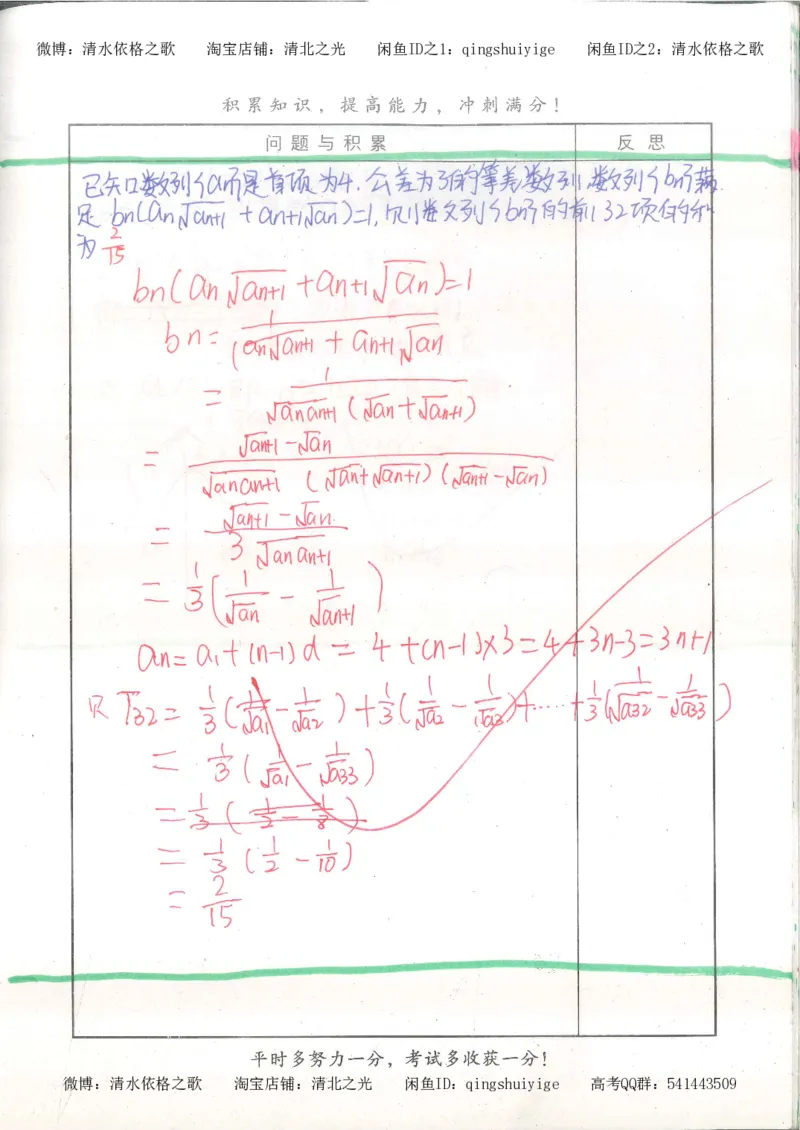 微博：清水依格之歌 淘宝店铺：清北之光 闲鱼ID之1：qingshuiyige 闲鱼ID之2：清水依格之歌
积累知识，提高能力，冲刺满分！
问题与积累 反思
已知数列{an}是首项为4,公差为3的等差数列,数列{bn}满
足 bn(an√an+1 + an+1√an)=1,则数列{bn}的前32项的和
为 2/15
bn(an√an+1 + an+1√an)=1
bn= 1/(an√an+1 + an+1√an
= 1/√anan+1 (√an+√an+1)
= √an+1-√an/√anan+1 (√an+√an+1)(√an+1-√an)
= √an+1-√an/3√anan+1
= 1/3(1/√an - 1/√an+1)
an=a1+(n-1)d = 4+(n-1)×3=4+3n-3=3n+1
则T32= 1/3(1/√a1-1/√a2)+1/3(1/√a2-1/√a3)+……+1/3(1/√a32-1/√a33)
= 1/3(1/√a1-1/√a33)
=1/3(1/2-1/8)
= 1/3(1/2-1/10)
= 2/15
平时多努力一分，考试多收获一分！
微博：清水依格之歌 淘宝店铺：清北之光 闲鱼ID：qingshuiyige 高考QQ群：541443509